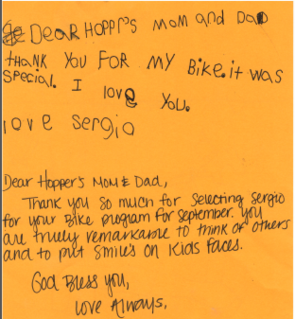 DEAR HOPPr's MOM and DaD
tHANK YOU FOR MY Bike. it was
SPecial. I love YOU.
love sergio
Dear Hopper's MOM & Dad,
Thank you so much for selecting Sergio
for your Bike program for September. you
are truely remarkable to think of others
and to put smile's on kids faces.
God Bless you,
Love Always,